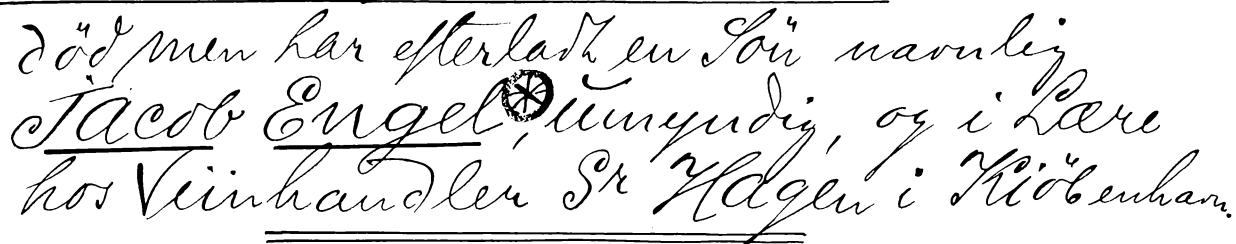 död men har efterladt en Sön navnlig
Jacob Engel, umyndig, og i Lære
hos Viinhandler Sr Hagen i Kiöbenhavn.